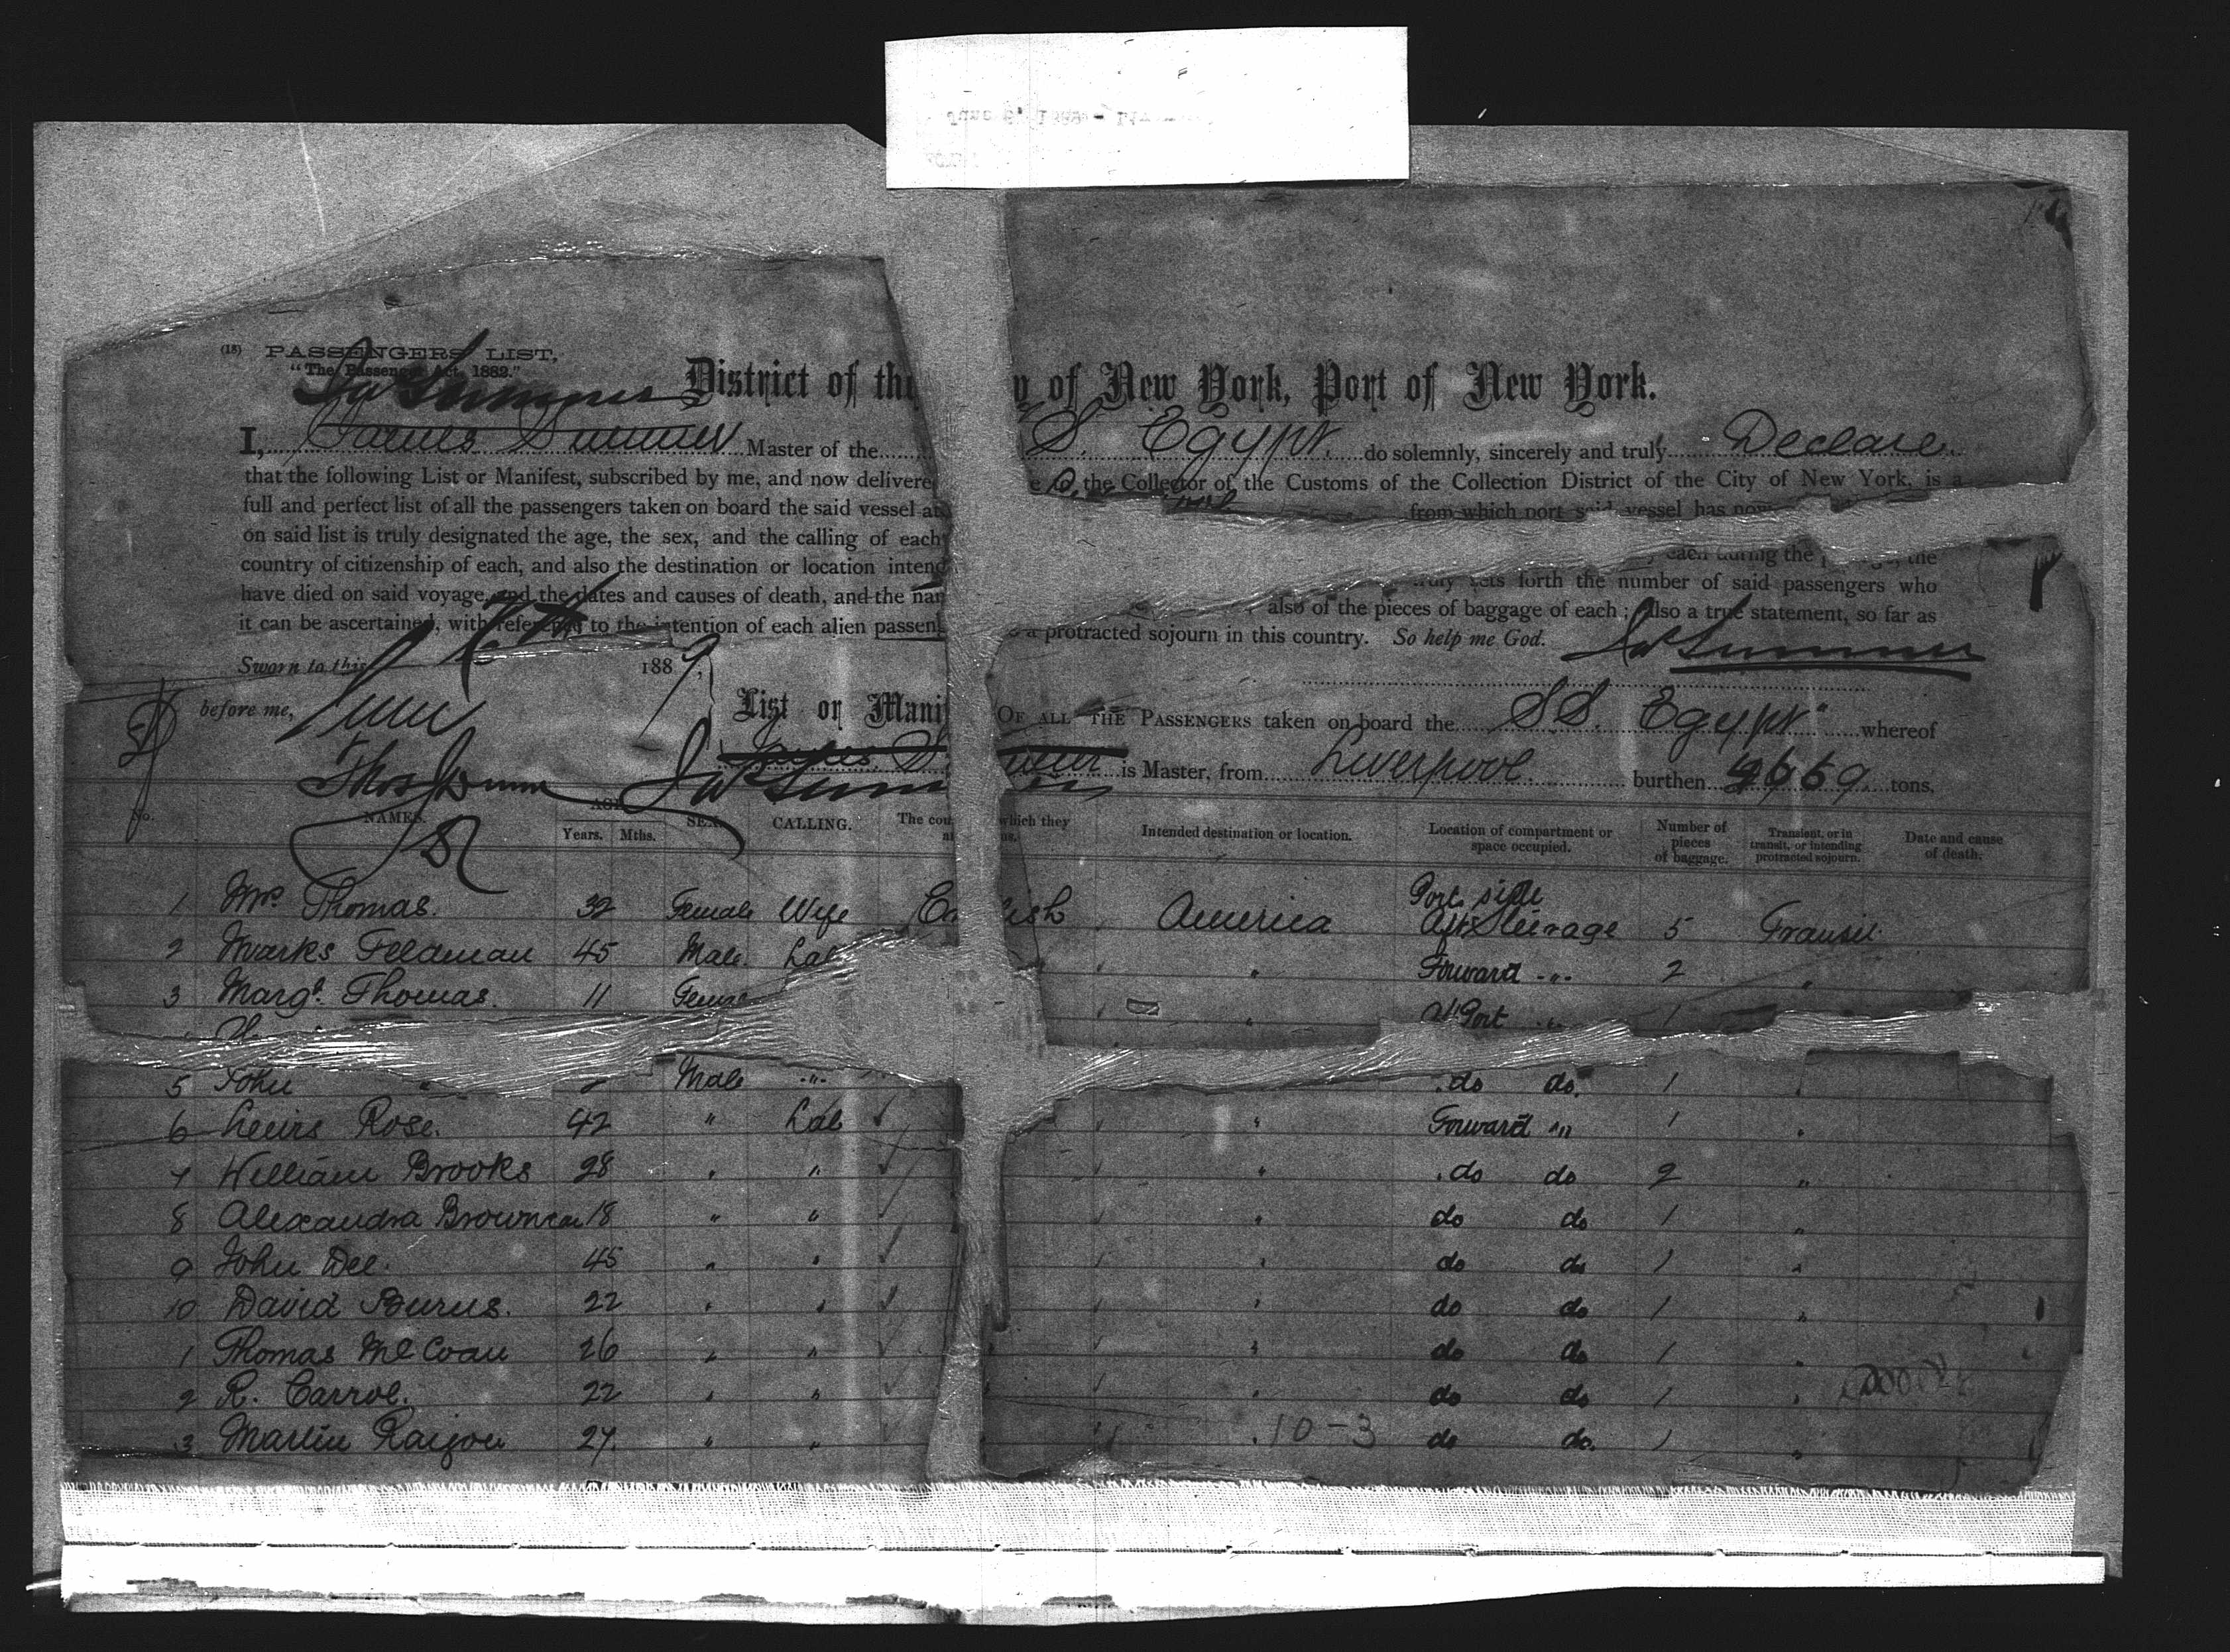 (18) PASSENGERS LIST.
"The Passenger Act, 1882."
Jas Sumner
District of the y of New York, Port of New York.
I, James Sumner Master of the S. Egypt. do solemnly, sincerely and truly Declare
that the following List or Manifest, subscribed by me, and now delivere the Collector of the Customs of the Collection District of the City of New York, is a
full and perfect list of all the passengers taken on board the said vessel at from which port said vessel has now
on said list is truly designated the age, the sex, and the calling of each each during the the
country of citizenship of each, and also the destination or location intend sets forth the number of said passengers who
have died on said voyage, and the dates and causes of death, and the nam also of the pieces of baggage of each; also a true statement, so far as
it can be ascertained, with reference to the intention of each alien passen a protracted sojourn in this country. So help me God. Jas Sumner
Sworn to this 6th 1889,
before me, June
List or Mani OF ALL THE PASSENGERS taken on board the SS. Egypt" whereof
James S is Master, from Liverpool burthen 4669 tons.
Jas Sumner
No. NAMES. AGE Years. Mths. SEX. CALLING. The cou which they Intended destination or location. Location of compartment or space occupied. Number of pieces of baggage. Transient, or in transit, or intending protracted sojourn. Date and cause of death.
1 Mrs. Thomas. 32 Female Wife En lish America Port side Aft Steerage 5 Transit
2 Marks Feldman 45 Male. Lab " Forward " 2 "
3 Margt. Thomas. 11 Fema " Aft Port " 1
5 John " Male " do do. 1 "
6 Lewis Rose. 42 " Lab " Forward " 1 "
7 William Brooks 28 " " " do do 2 "
8 Alexandra Brownean 18 " " " do do 1 "
9 John Dee. 45 " " " do do 1 "
10 David Burns. 22 " " " do do 1 "
1 Thomas McCoan 26 " " " do do 1 "
2 R. Carrol. 22 " " do do 1 "
3 Martin Raijou 27. " " " 10-3 do do. 1 "